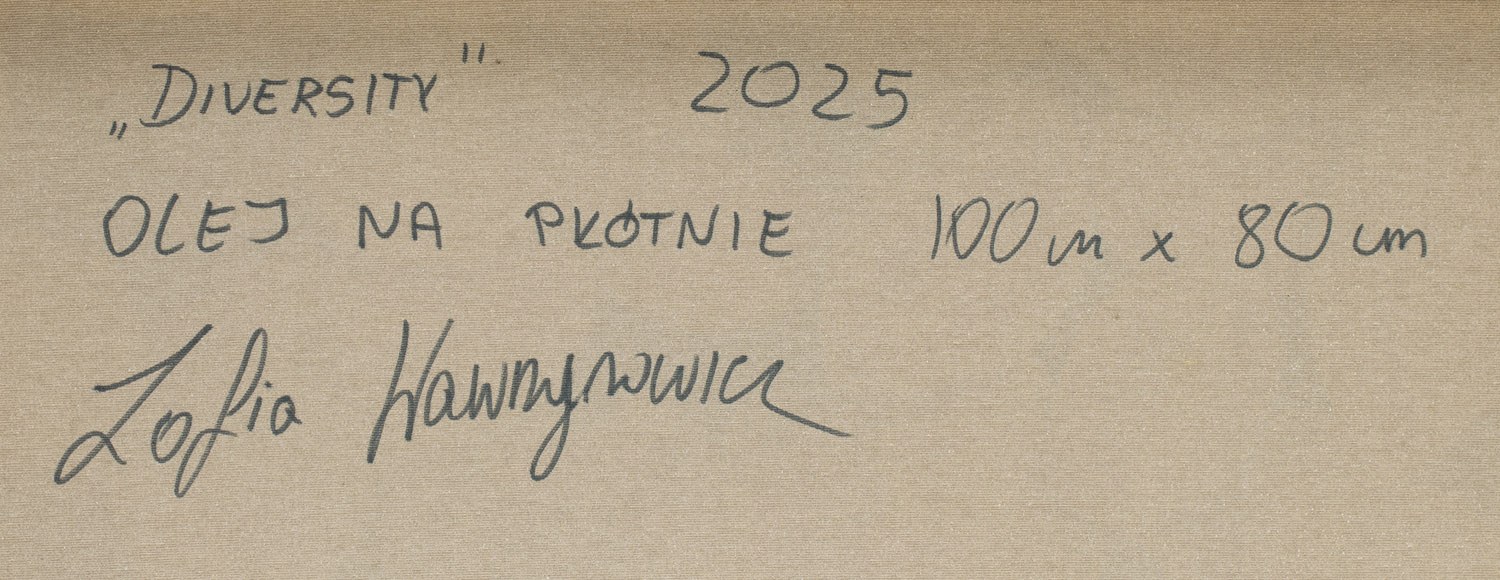 „DIVERSITY" 2025
OLEJ NA PŁÓTNIE 100 cm x 80 cm
Zofia Wawrynowicz